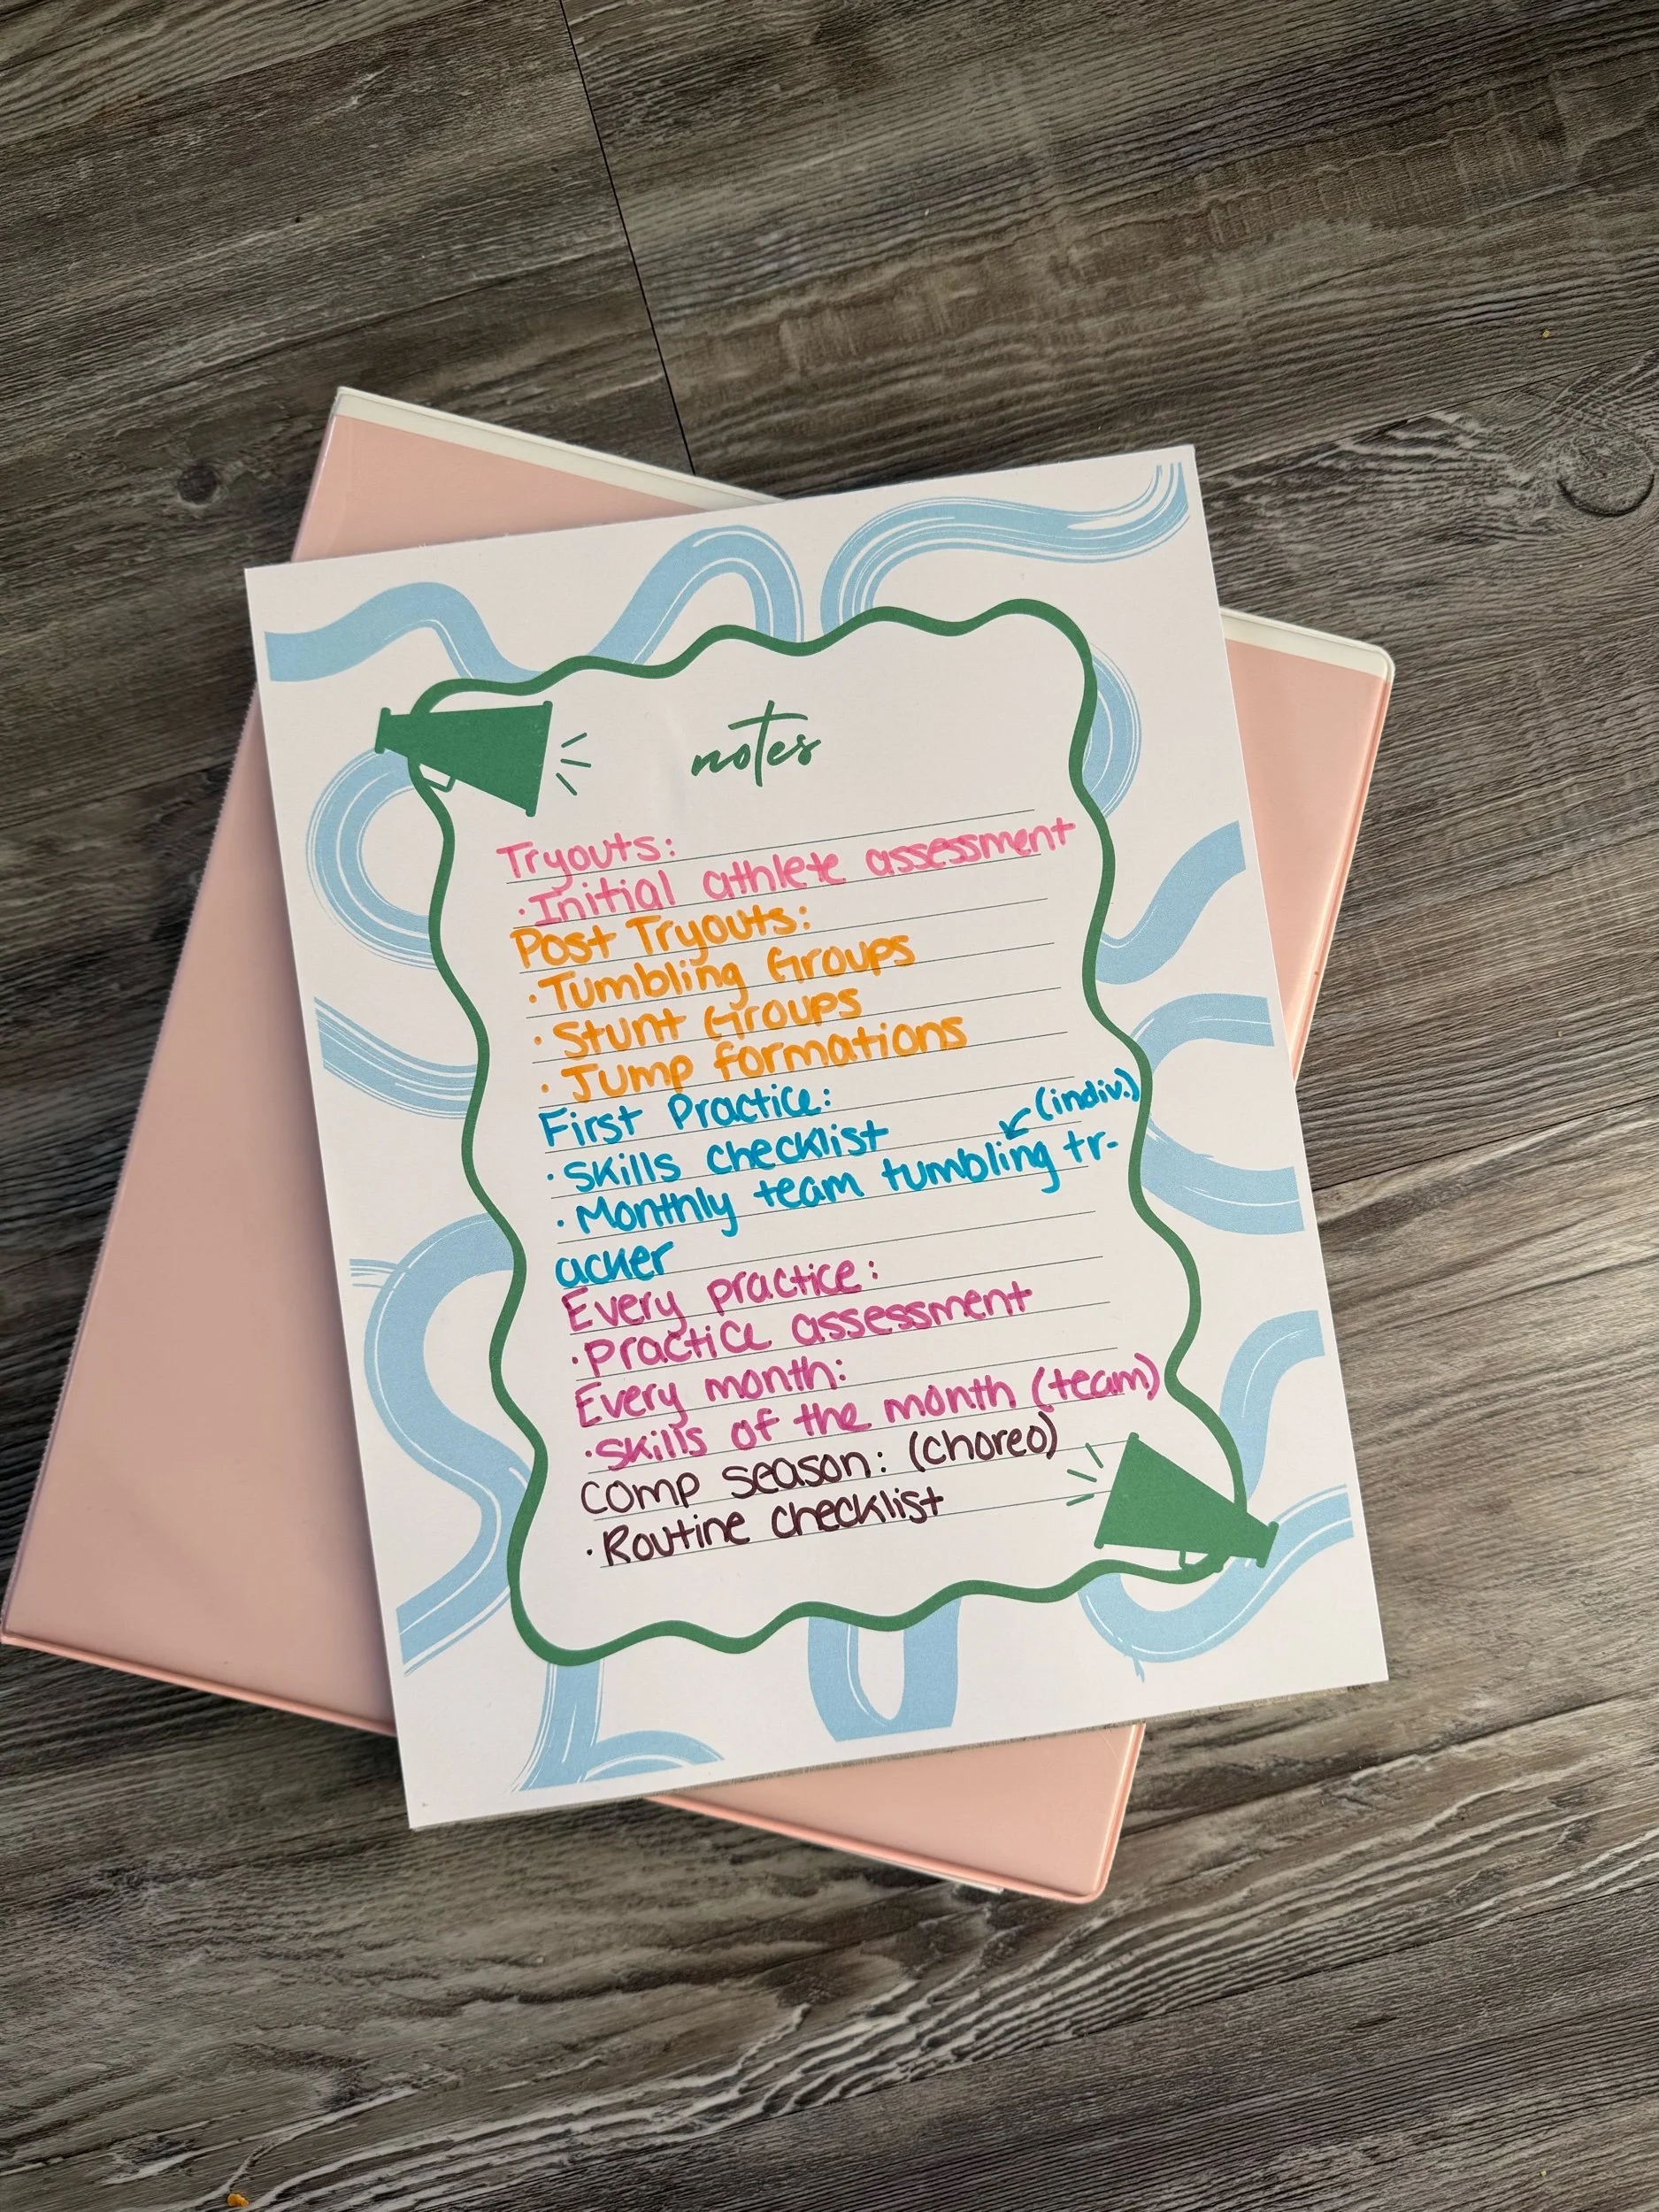 notes
Tryouts:
·Initial athlete assessment
Post Tryouts:
·Tumbling Groups
·Stunt Groups
·Jump formations
First Practice:
(indiv.)
·Skills checklist
·Monthly team tumbling tr-
acker
Every practice:
·Practice assessment
Every month:
·Skills of the month (team)
Comp season: (choreo)
·Routine checklist